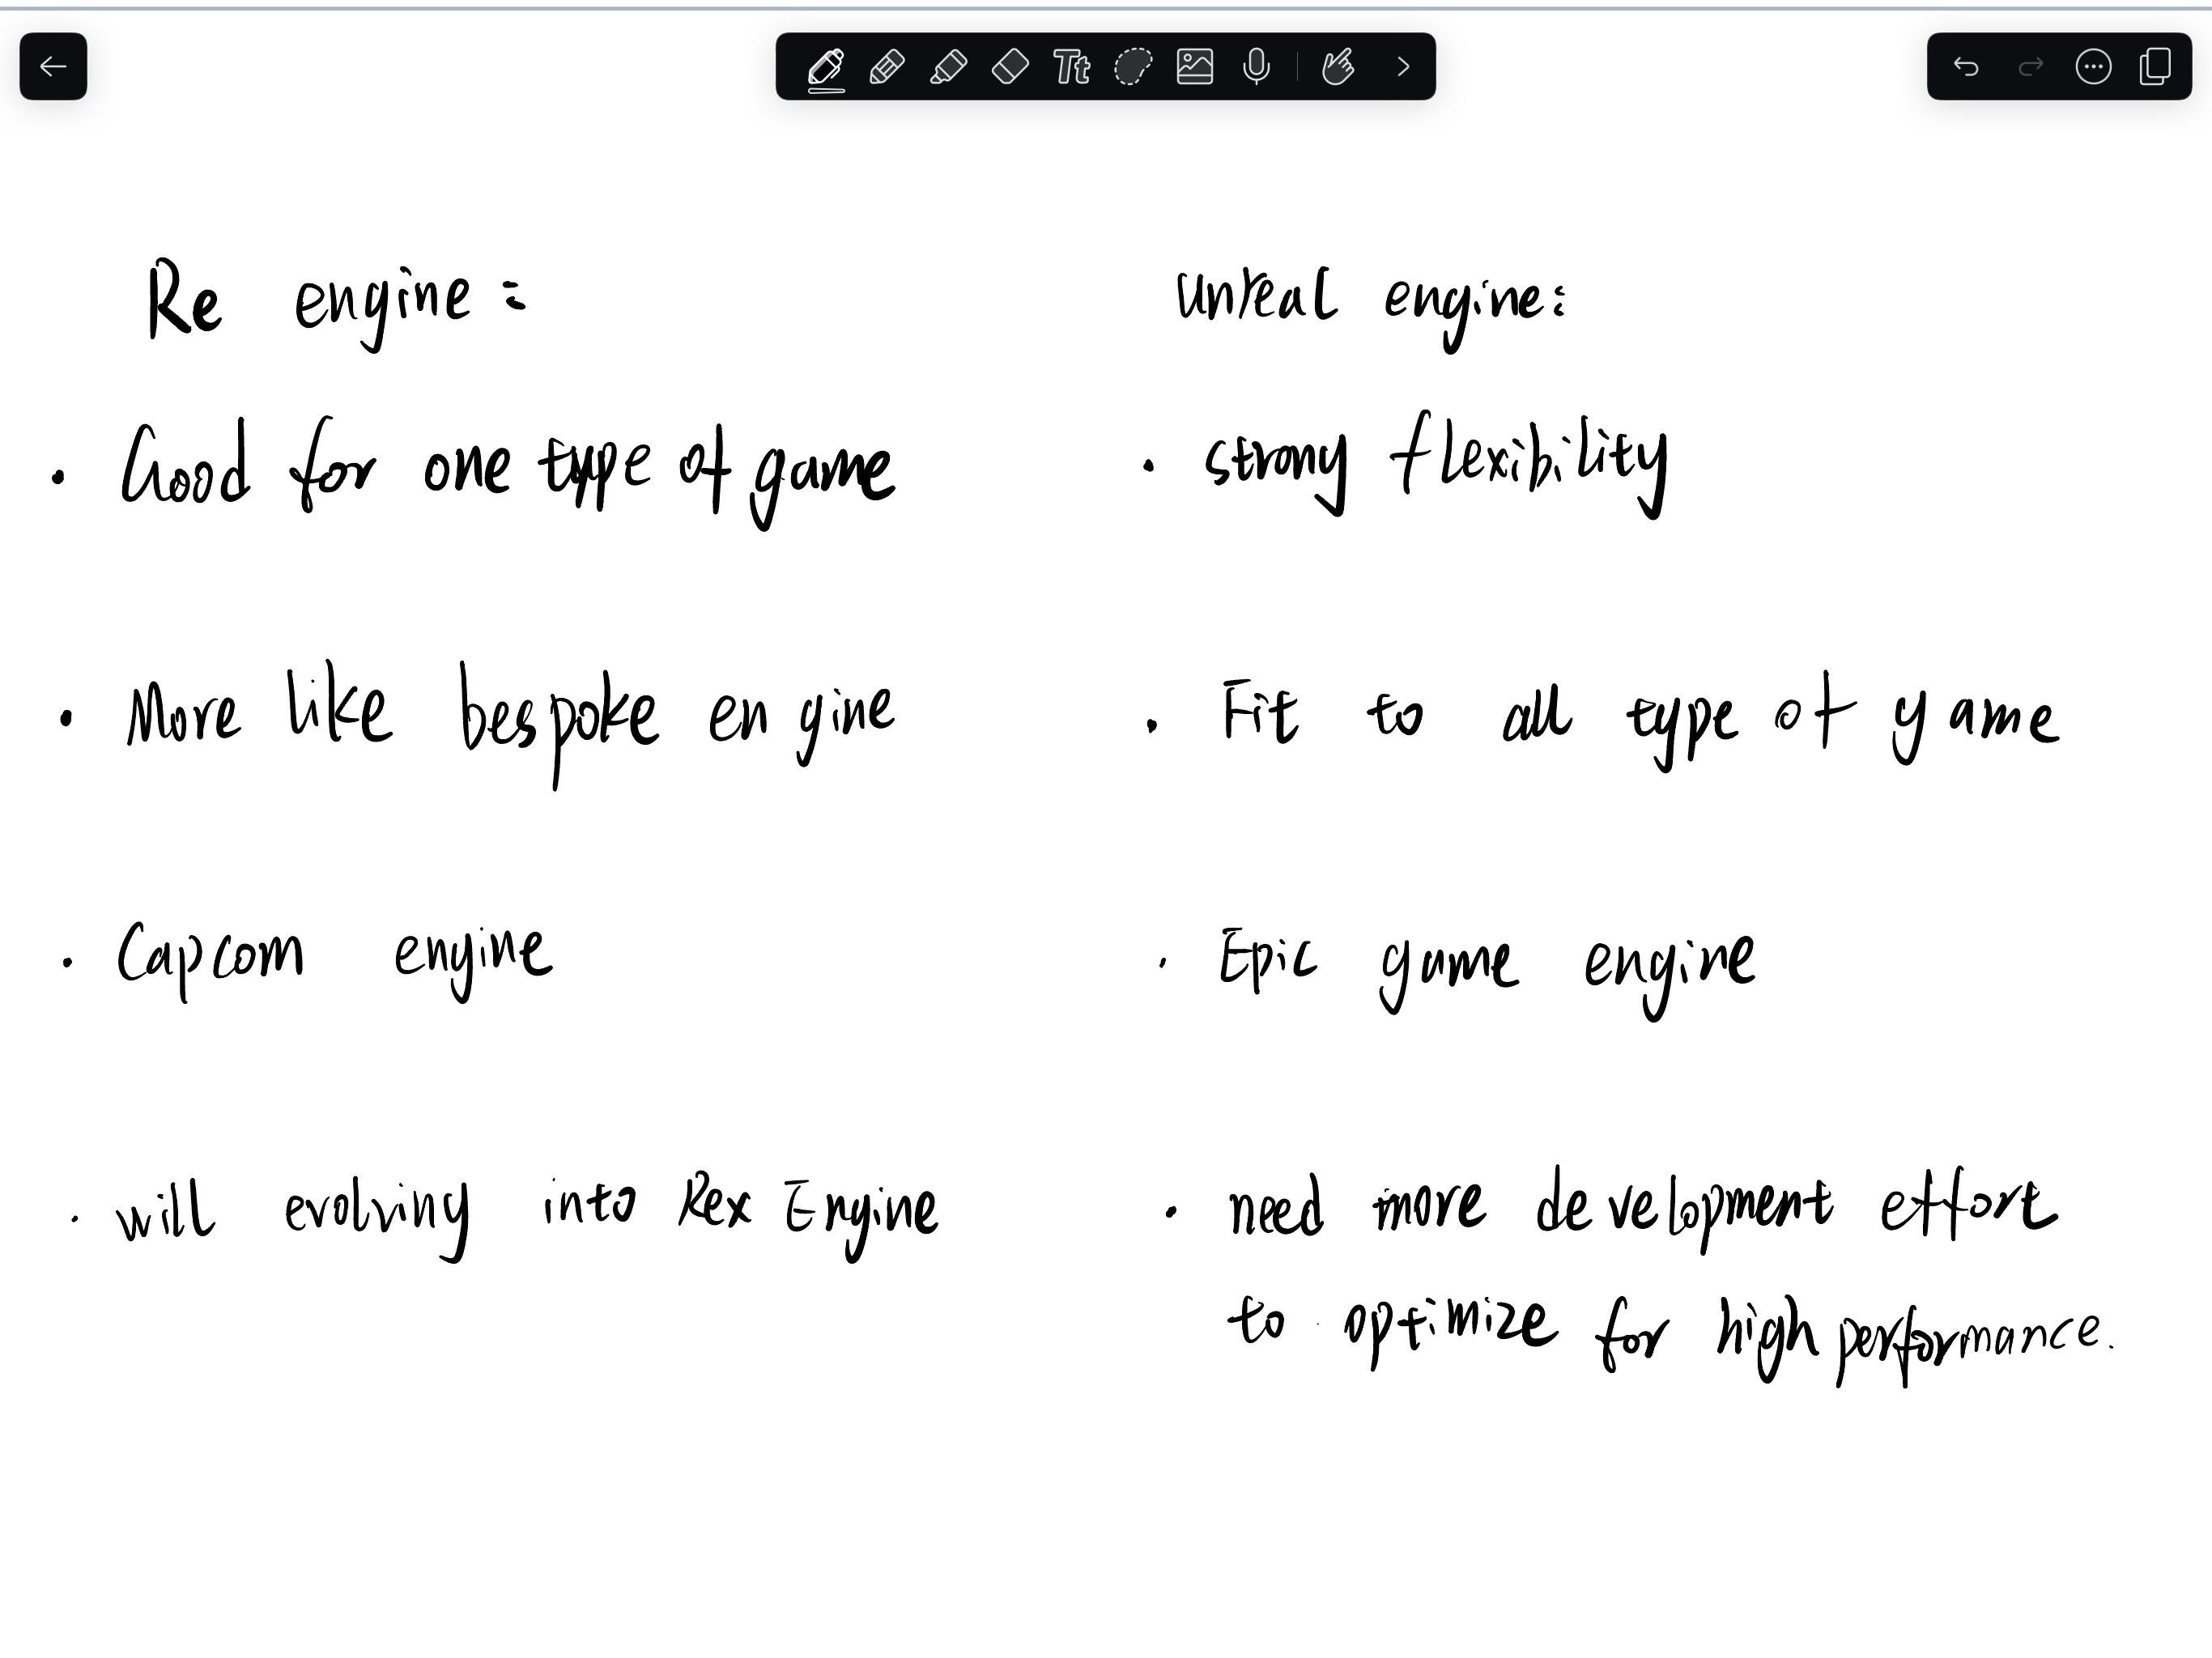 Tt
Re engine:
• Good for one type of game
• More like bespoke engine
• Capcom engine
• will evolving into Rex Engine
unreal engine:
• strong flexibility
• Fit to all type of game
• Epic game engine
• need more development effort
to optimize for high performance.